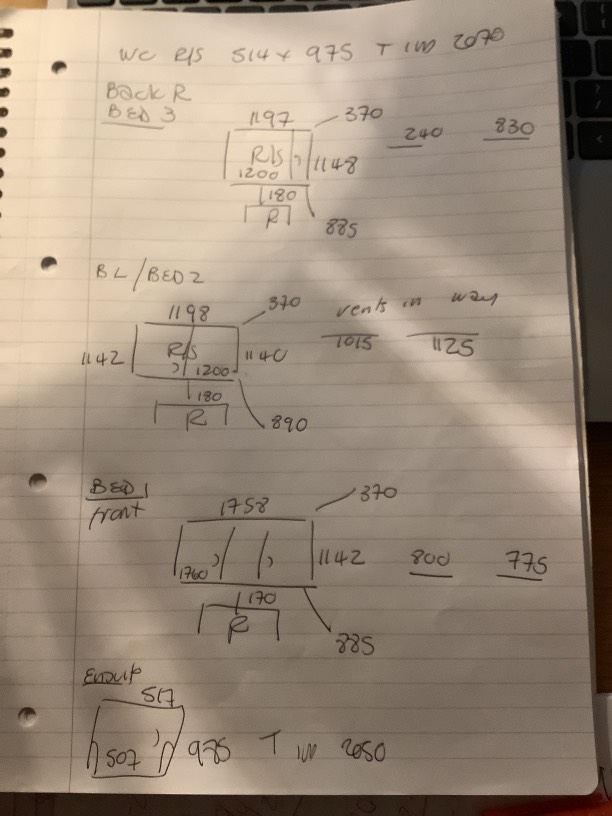 WC R/S 514 x 975 T IW 2070
Back R
BED 3
1197 370
240 830
R/S 1148
1200
180
R
885
BL/BED 2
1198 370 vents in way
1142 R/S 1140 1015 1125
1200
180
R 890
BED 1
front
1758 370
1760 1142 800 775
170
R
885
Ensuit
517
507 975 T IW 2050